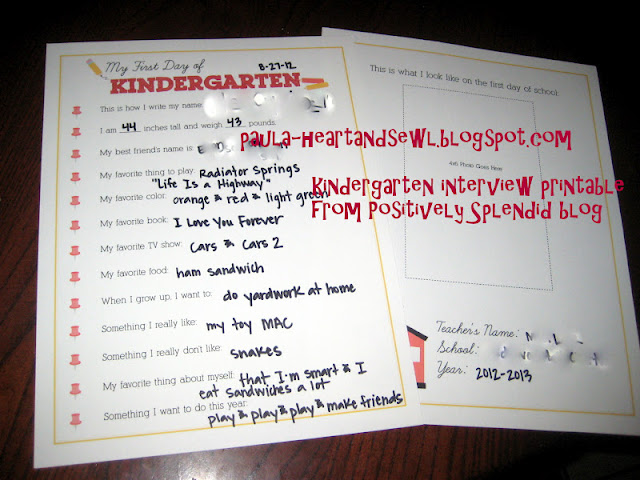 My First Day of
8-27-12
KINDERGARTEN
This is how I write my name:
I am 44 inches tall and weigh 43 pounds.
My best friend's name is:
My favorite thing to play: Radiator Springs
"Life Is a Highway"
My favorite color: orange & red & light green
My favorite book: I Love You Forever
My favorite TV show: Cars & Cars 2
My favorite food: ham sandwich
When I grow up, I want to: do yardwork at home
Something I really like: my toy MAC
Something I really don't like: snakes
My favorite thing about myself: that I'm smart & I
eat sandwiches a lot
Something I want to do this year:
play & play & play & make friends
This is what I look like on the first day of school:
4x6 Photo Goes Here
Teacher's Name:
School:
Year: 2012-2013
paula-heartandsewl.blogspot.com
Kindergarten interview printable
From Positively Splendid blog